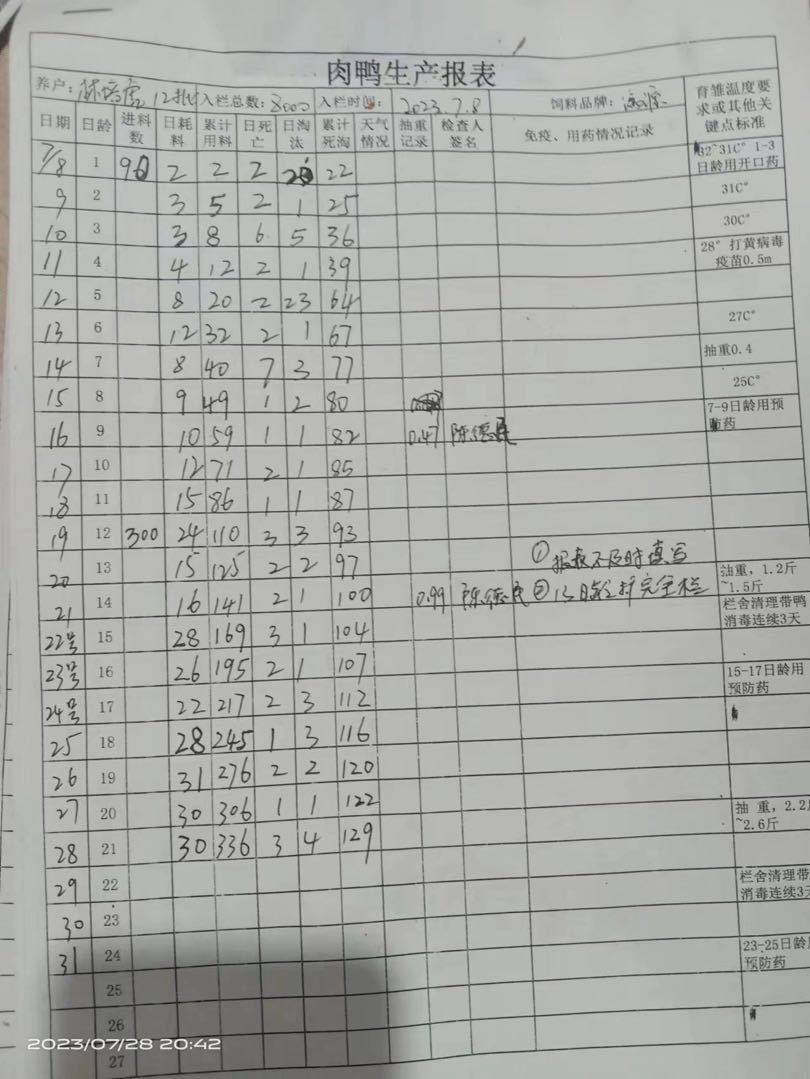 肉鸭生产报表
养户: 12批 入栏总数: 8000 入栏时间: 2023.7.8 饲料品牌: 育雏温度要求或其他关键点标准
日期 日龄 进料数 日耗料 累计用料 日死亡 日淘汰 累计死淘 天气情况 抽重记录 检查人签名 免疫、用药情况记录
7/8 1 90 2 2 2 20 22 32~31C° 1-3日龄用开口药
9 2 3 5 2 1 25 31C°
10 3 3 8 6 5 36 30C°
11 4 4 12 2 1 39 28° 打黄病毒疫苗0.5m
12 5 8 20 2 23 64
13 6 12 32 2 1 67 27C°
14 7 8 40 7 3 77 抽重0.4
15 8 9 49 1 2 80 25C°
16 9 10 59 1 1 82 0.47 陈德民 7-9日龄用预防药
17 10 12 71 2 1 85
18 11 15 86 1 1 87
19 12 300 24 110 3 3 93
20 13 15 125 2 2 97 ①报表不及时填写
21 14 16 141 2 1 100 0.99 陈德民 ②13日龄扩完全栏 抽重,1.2斤~1.5斤
22号 15 28 169 3 1 104 栏舍清理带鸭消毒连续3天
23号 16 26 195 2 1 107
24号 17 22 217 2 3 112 15-17日龄用预防药
25 18 28 245 1 3 116
26 19 31 276 2 2 120
27 20 30 306 1 1 122
28 21 30 336 3 4 129 抽 重,2.2斤~2.6斤
29 22
30 23 栏舍清理带 消毒连续3天
31 24
25 23-25日龄 预防药
26
27
2023/07/28 20:42